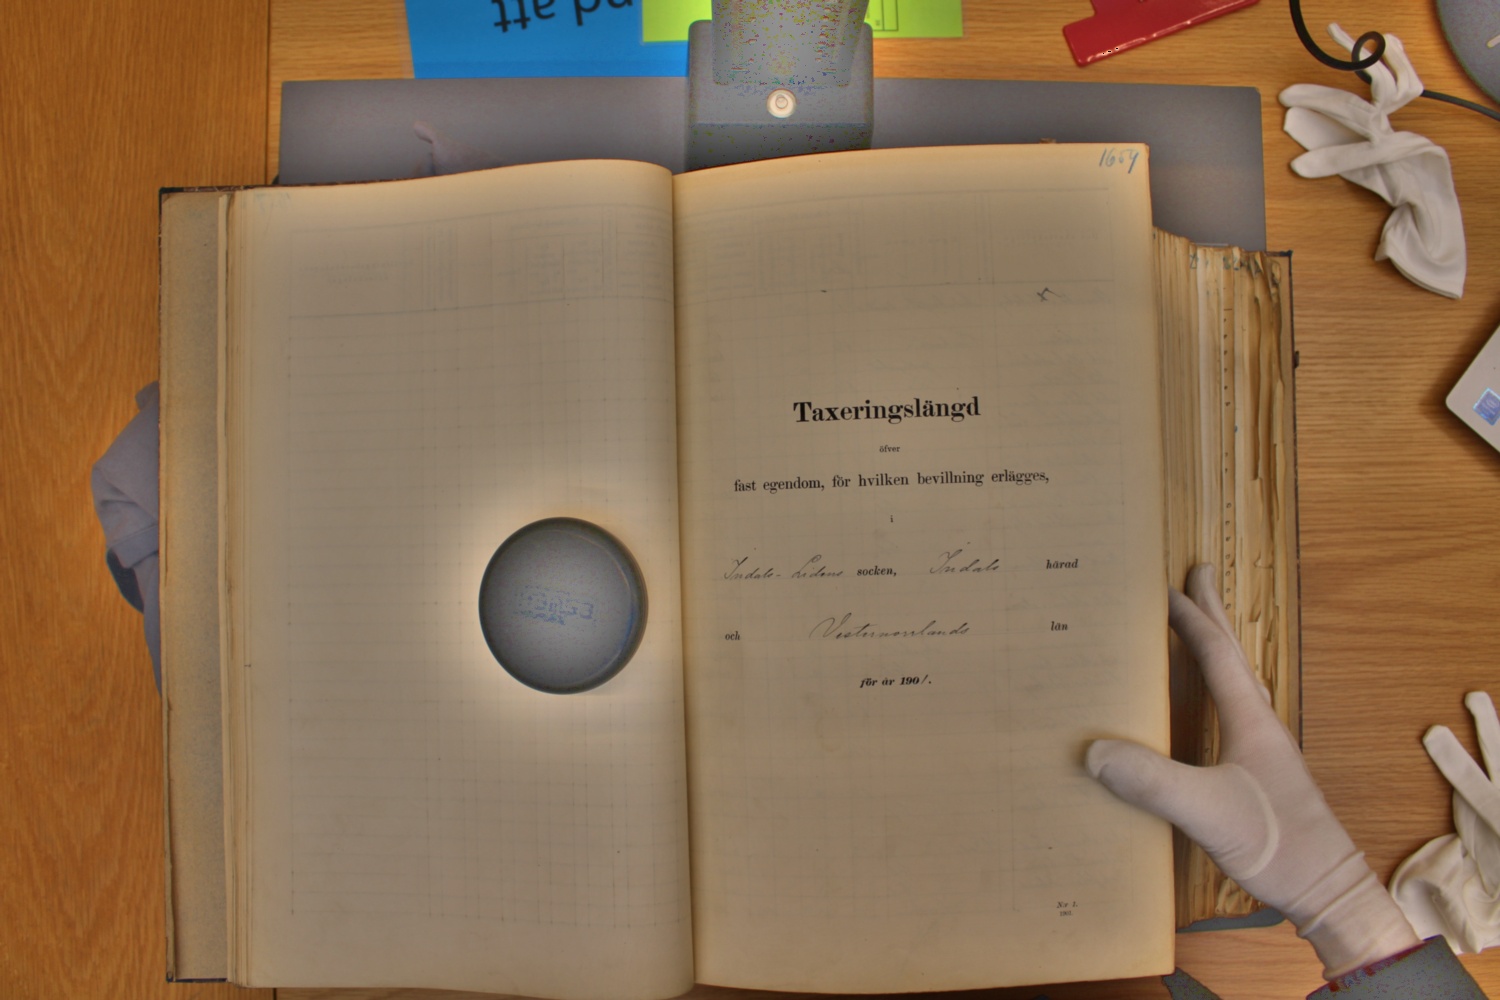 nd att
1659
Taxeringslängd
öfver
fast egendom, för hvilken bevillning erlägges,
i
Indals-Lidens socken, Indals härad
och Vesternorrlands län
för år 1901.
N:r 1.
1901.